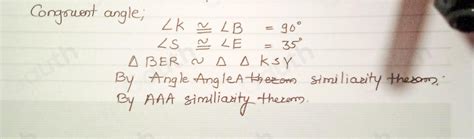 Congruent angle;
∠K ≅ ∠B = 90°
∠S ≅ ∠E = 35°
Δ BER ~ Δ Δ KSY
By Angle AngleA thezom similiazity thezom.
By AAA similiazity thezom.